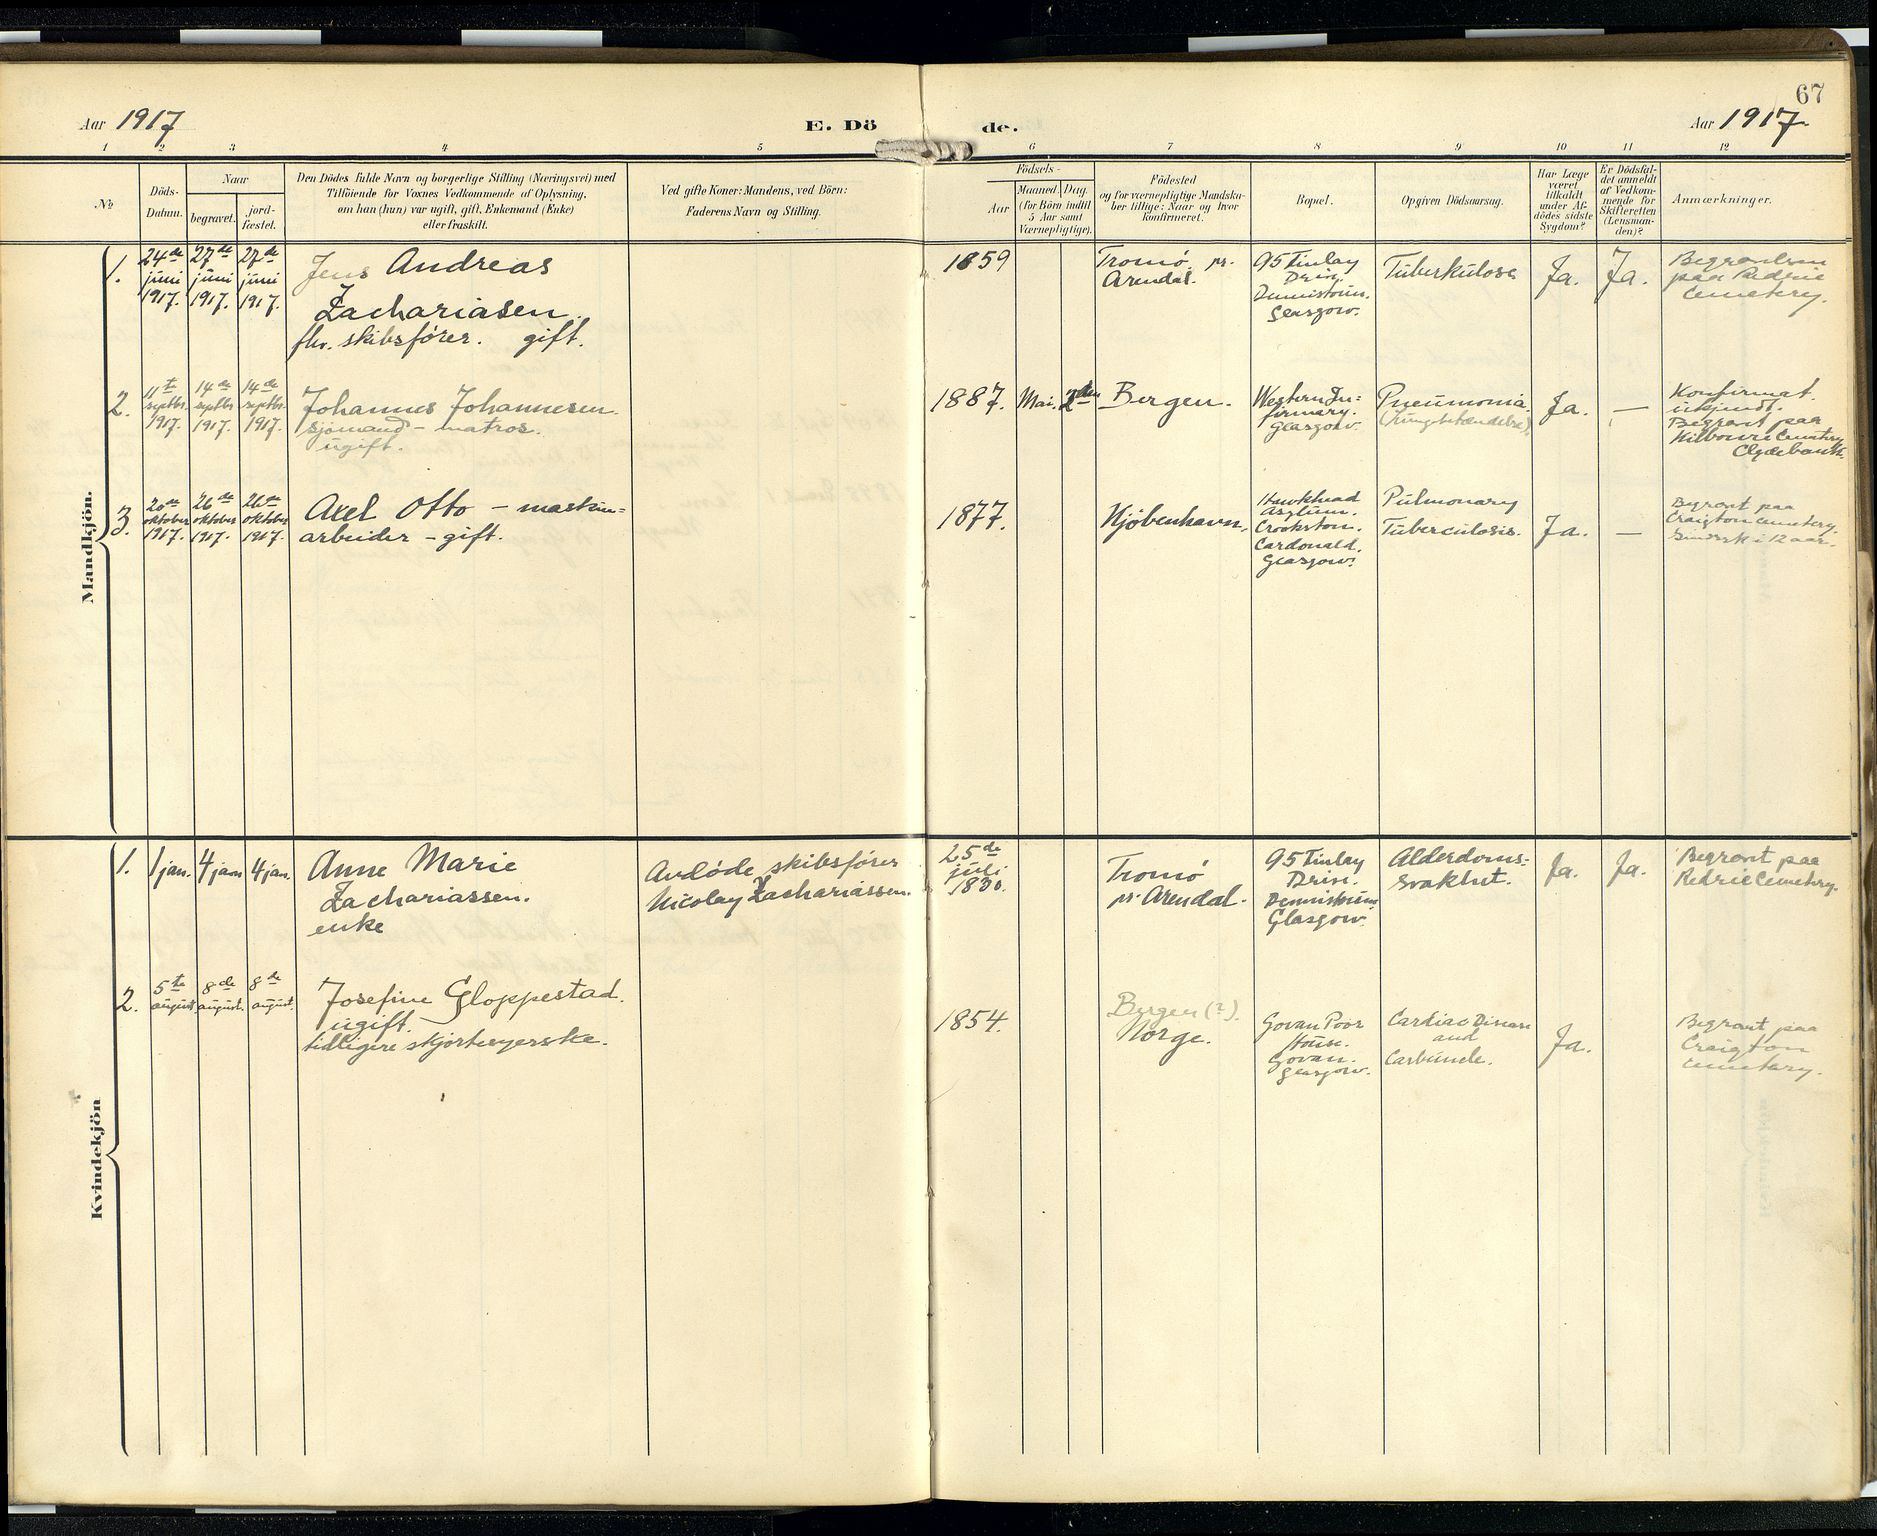 67
Aar 1917 E. Dö de. Aar 1917.
1 2 3 4 5 6 7 8 9 10 11 12
No
Döds-
Datum.
Naar
begravet.
jord-
fæstet.
Den Dödes fulde Navn og borgerlige Stilling (Næringsvei) med
Tilföiende for Voxnes Vedkommende af Oplysning,
om han (hun) var ugift, gift, Enkemand (Enke)
eller fraskilt.
Ved gifte Koner: Mandens, ved Börn:
Faderens Navn og Stilling.
Födsels-
Aar
Maaned. Dag.
(for Börn indtil
5 Aar samt
Værnepligtige).
Födested
og for værnepligtige Mandska-
ber tillige: Naar og hvor
konfirmeret.
Bopæl.
Opgiven Dödsaarsag.
Har Læge
været
tilkaldt
under Af-
dödes sidste
Sygdom?
Er Dödsfal-
det anmeldt
af Vedkom-
mende for
Skifteretten
(Lensman-
den)?
Anmærkninger.
Mandkjön.
1.
24de
juni
1917.
27de
juni
1917.
27de
juni
1917.
Jens Andreas
Zachariasen.
fhv. skibsfører. gift.
1859
Tromø pr.
Arendal.
95 Finlay
Drive
Dennistoun.
Glasgow.
Tuberkulose
Ja.
Ja.
Begravelsen
paa Riddrie
Cemetery.
2.
11te
septbr.
1917.
14de
septbr.
1917.
14de
septbr.
1917.
Johannes Johannesen.
sjømand - matros.
ugift.
1887. Mai. 2den
Bergen.
Western In-
firmary.
Glasgow.
Pneumonia
(Lungebetændelse).
Ja.
—
Konfirmat.
ukjendt.
Begravt paa
Kilbowie Cemetery
Clydebank.
3.
20de
oktober
1917.
26de
oktober
1917.
26de
oktober
1917.
Axel Otto - maskin=
arbeider - gift.
1877.
Kjöbenhavn.
Hawkhead
Asylum.
Crookston.
Cardonald.
Glasgow.
Pulmonary
Tuberculosis.
Ja.
—
Begravt paa
Craigton cemetery.
Sindssyk i 12 aar.
Kvindekjön
1.
1 jan.
4 jan
4 jan.
Anne Marie
Zachariassen.
enke
Avdøde skibsfører
Nicolay Zachariassen.
25de
juli
1830.
Tromø
pr. Arendal.
95 Finlay
Drive.
Dennistoun
Glasgow.
Alderdoms-
svakhet.
Ja.
Ja.
Begravt paa
Redrie Cemetery.
2.
5te
august.
8de
august.
8de
august.
Josefine Gloppestad.
ugift.
tidligere skjortesyerske.
1854.
Bergen (?).
Norge.
Govan Poor
House.
Govan.
Glasgow.
Cardiac Disease
and
Carbuncle.
Ja.
Begravt paa
Craigton
cemetery.